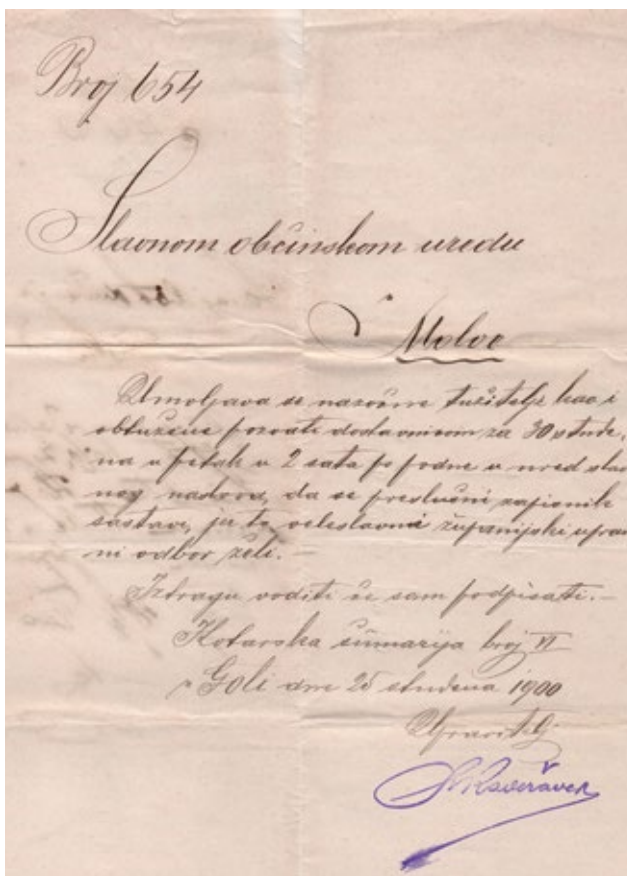 Broj 654
Slavnom občinskom uredu
Molve
Umoljava se nazočne tužitelje kao i
obtužene pozvati dostavnicom za 30 stude,
na u petak u 2 sata po podne u ured slav
nog naslova, da se preslušni zapisnik
sastavi, jer to veleslavni županijski uprav
ni odbor želi.—
Iztragu voditi će sam podpisati.—
Kotarska šumarija broj VI
Goli dne 25 studena 1900
Upravitelj